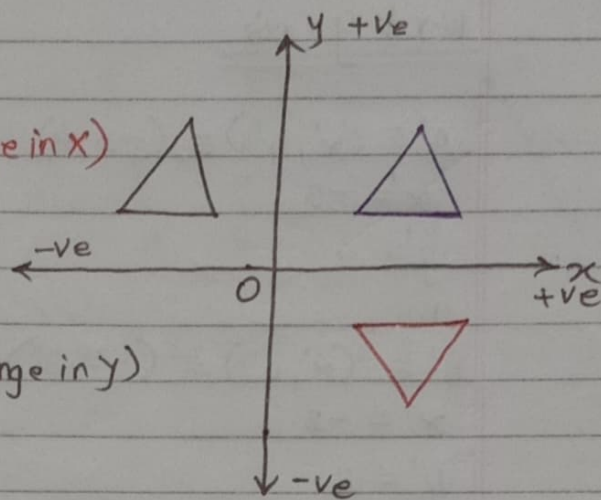 y +ve
e in x)
-ve
x
O
+ve
nge in y)
-ve